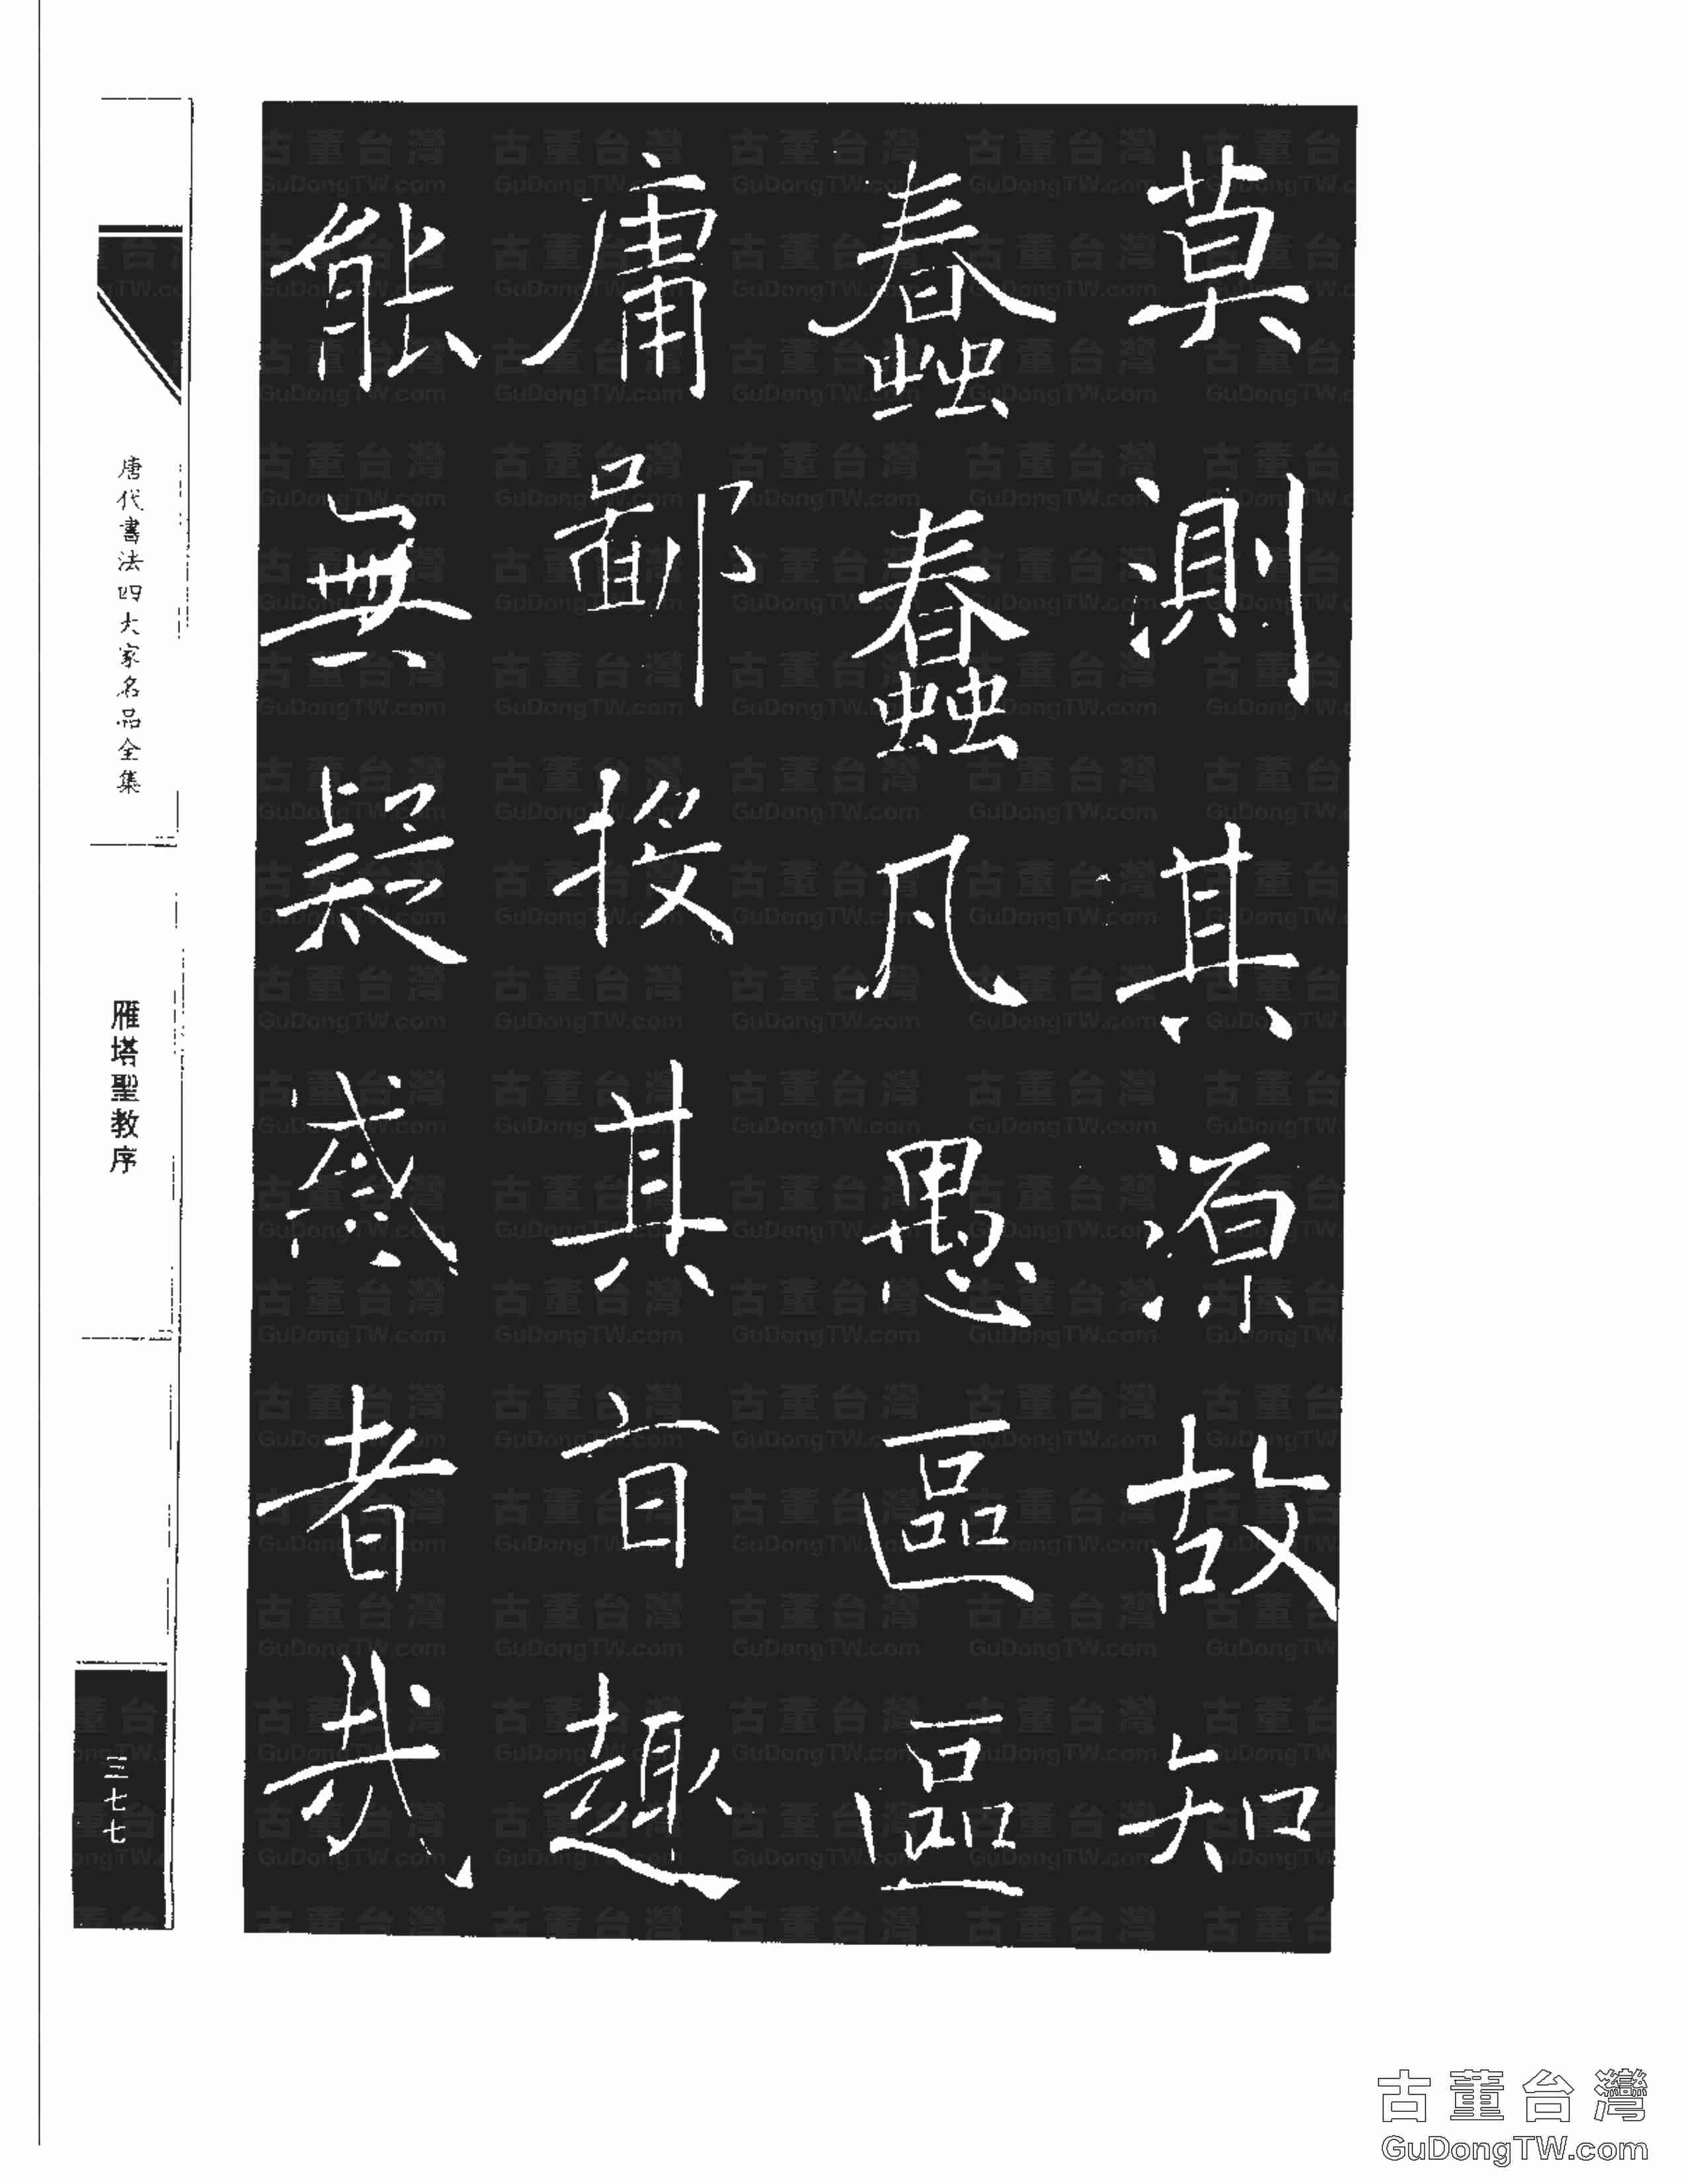 莫測其源故知
蠢蠢凡愚區區
庸鄙投其旨趣
能無疑惑者哉
唐代書法四大家名品全集
雁塔聖教序
三七七
古董台灣
GuDongTW.com